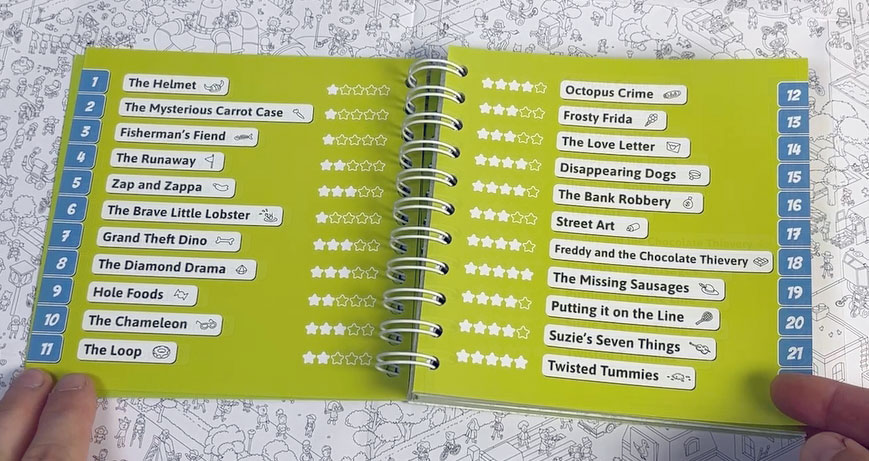 1 The Helmet
2 The Mysterious Carrot Case
3 Fisherman's Fiend
4 The Runaway
5 Zap and Zappa
6 The Brave Little Lobster
7 Grand Theft Dino
8 The Diamond Drama
9 Hole Foods
10 The Chameleon
11 The Loop
Octopus Crime 12
Frosty Frida 13
The Love Letter 14
Disappearing Dogs 15
The Bank Robbery 16
Street Art 17
Freddy and the Chocolate Thievery 18
The Missing Sausages 19
Putting it on the Line 20
Suzie's Seven Things 21
Twisted Tummies